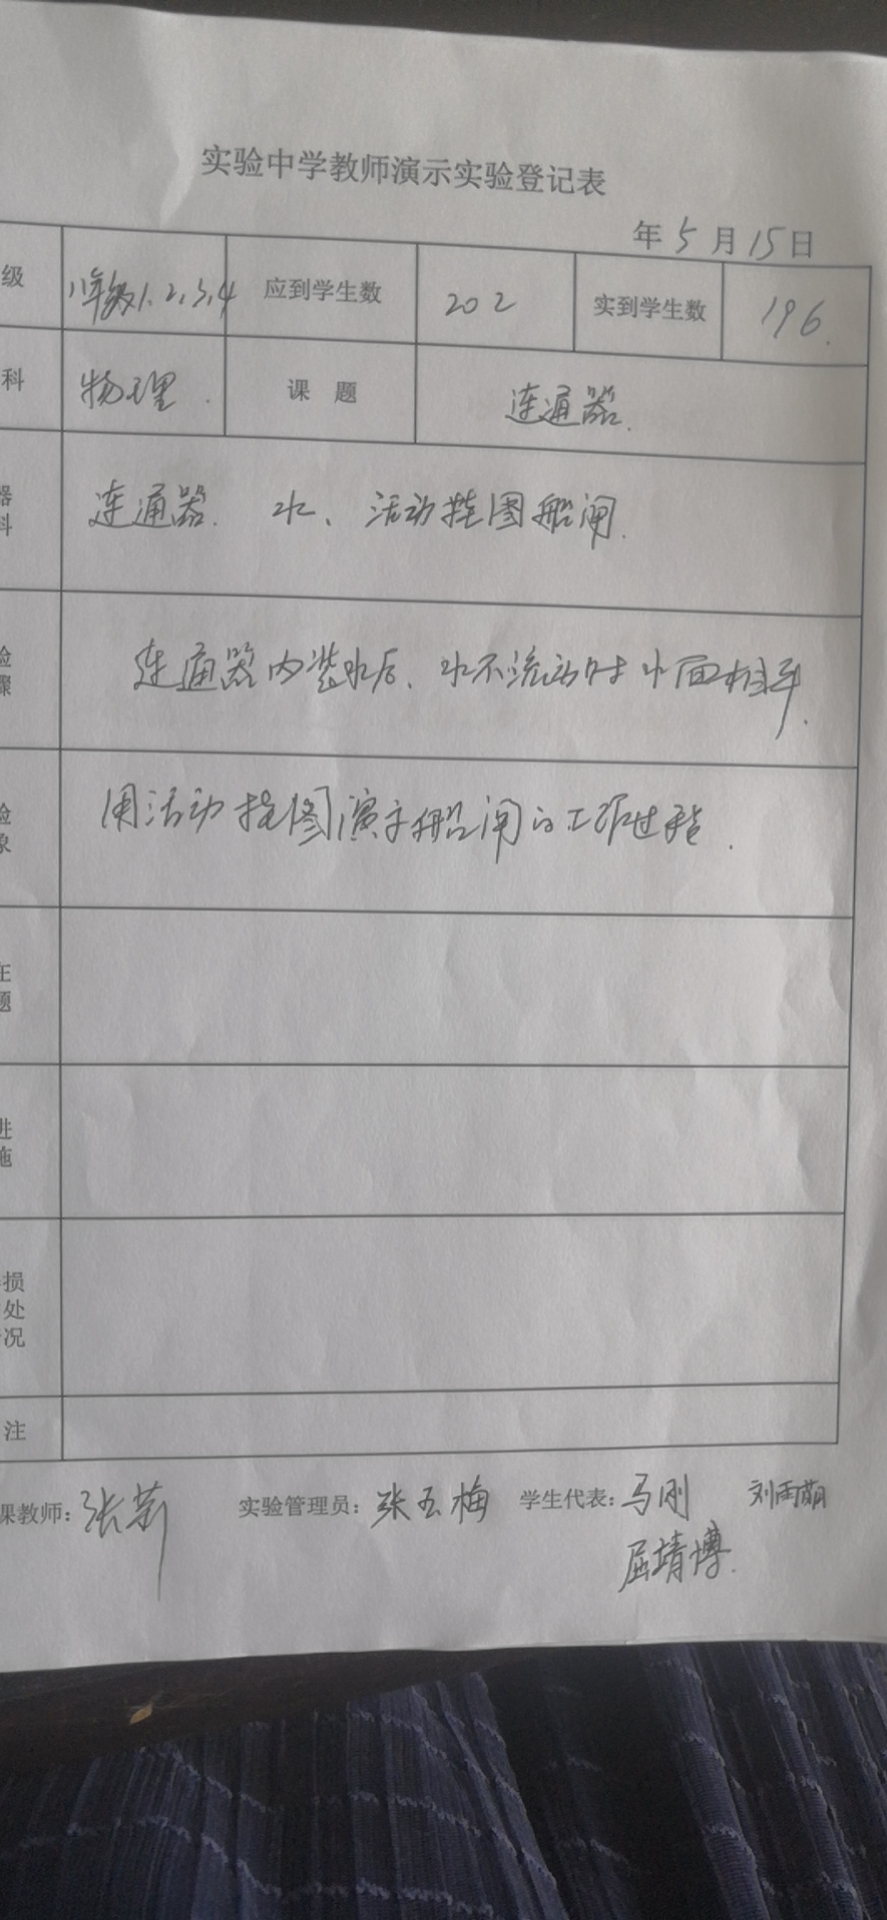 实验中学教师演示实验登记表
年5月15日
级 八年级1.2,3,4 应到学生数 202 实到学生数 196.
科 物理. 课 题 连通器.
器
料
连通器. 水、活动挂图船闸.
验
骤
连通器内装水后、水不流动时水面相平.
验
象
用活动挂图演示船闸的工作过程.
在
题
进
施
损
处
况
注
课教师: 张莉 实验管理员: 张玉梅 学生代表: 马刚 刘雨萌
屈靖博.